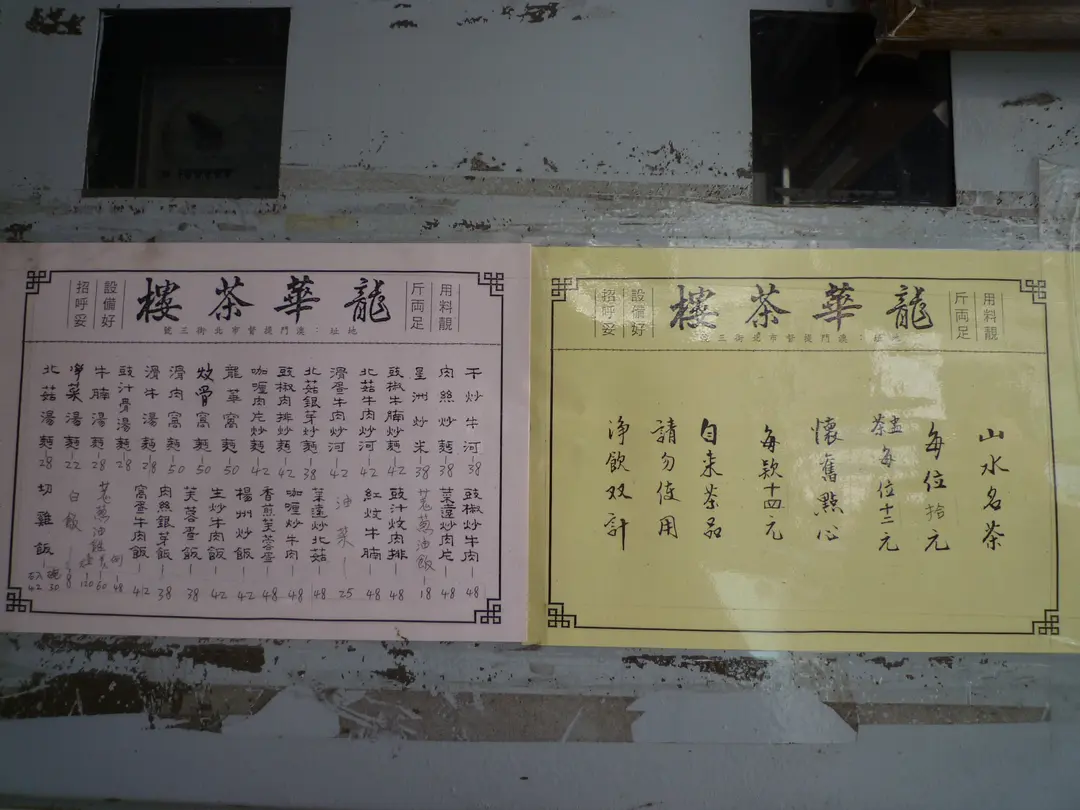 用料靚
斤両足
龍華茶樓
設備好
招呼妥
地址：澳門提督市北街三號
干炒牛河 38
肉絲炒麵 38
星洲炒米 38
豉椒牛腩炒麵 42
北菇牛肉炒河 42
滑蛋牛肉炒河 42
北菇銀芽炒麵 38
豉椒肉排炒麵 42
咖喱肉片炒麵 42
龍華窩麵 50
炆骨窩麵 50
滑肉窩麵 50
滑牛湯麵 28
豉汁骨湯麵 28
牛腩湯麵 28
淨菜湯麵 22
北菇湯麵 28
豉椒炒牛肉 48
菜遠炒肉片 48
芫葱油飯 18
豉汁炆肉排 48
紅炆牛腩 48
油菜 25
菜遠炒北菇 48
咖喱炒牛肉 48
香煎芙蓉蛋 48
楊州炒飯 42
生炒牛肉飯 42
芙蓉蛋飯 38
肉絲銀芽飯 38
窩蛋牛肉飯 42
白飯
切雞飯
用料靚
斤両足
龍華茶樓
設備好
招呼妥
地址：澳門提督市北街三號
山水名茶
每位拾元
茶盅每位十二元
懷舊點心
每款十四元
自来茶品
請勿使用
淨飲双計